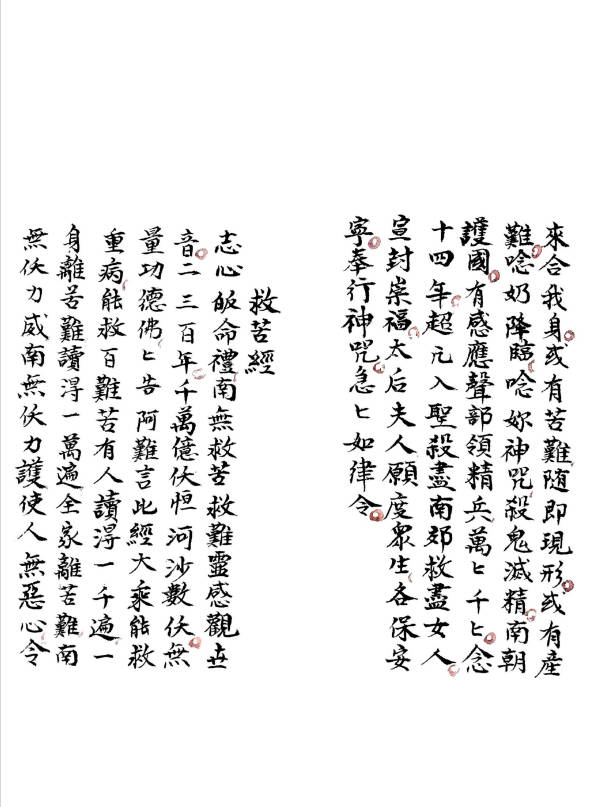 來合我身或有苦難随即現形或有産
難唸奶降臨唸妳神咒殺鬼滅精南朝
護國有感應聲部領精兵萬匕千匕念
十四年超元入聖殺盡南郊救盡女人
宣封崇福太后夫人願度眾生各保安
寧奉行神咒急匕如律令
救苦經
志心皈命禮南無救苦救難靈感觀世
音二三百年千萬億伏恒河沙數伏無
量功德佛匕告阿難言此經大乘能救
重病能救百難苦有人讀淂一千遍一
身離苦難讀淂一萬遍全家離苦難南
無伏力威南無伏力護使人無惡心令